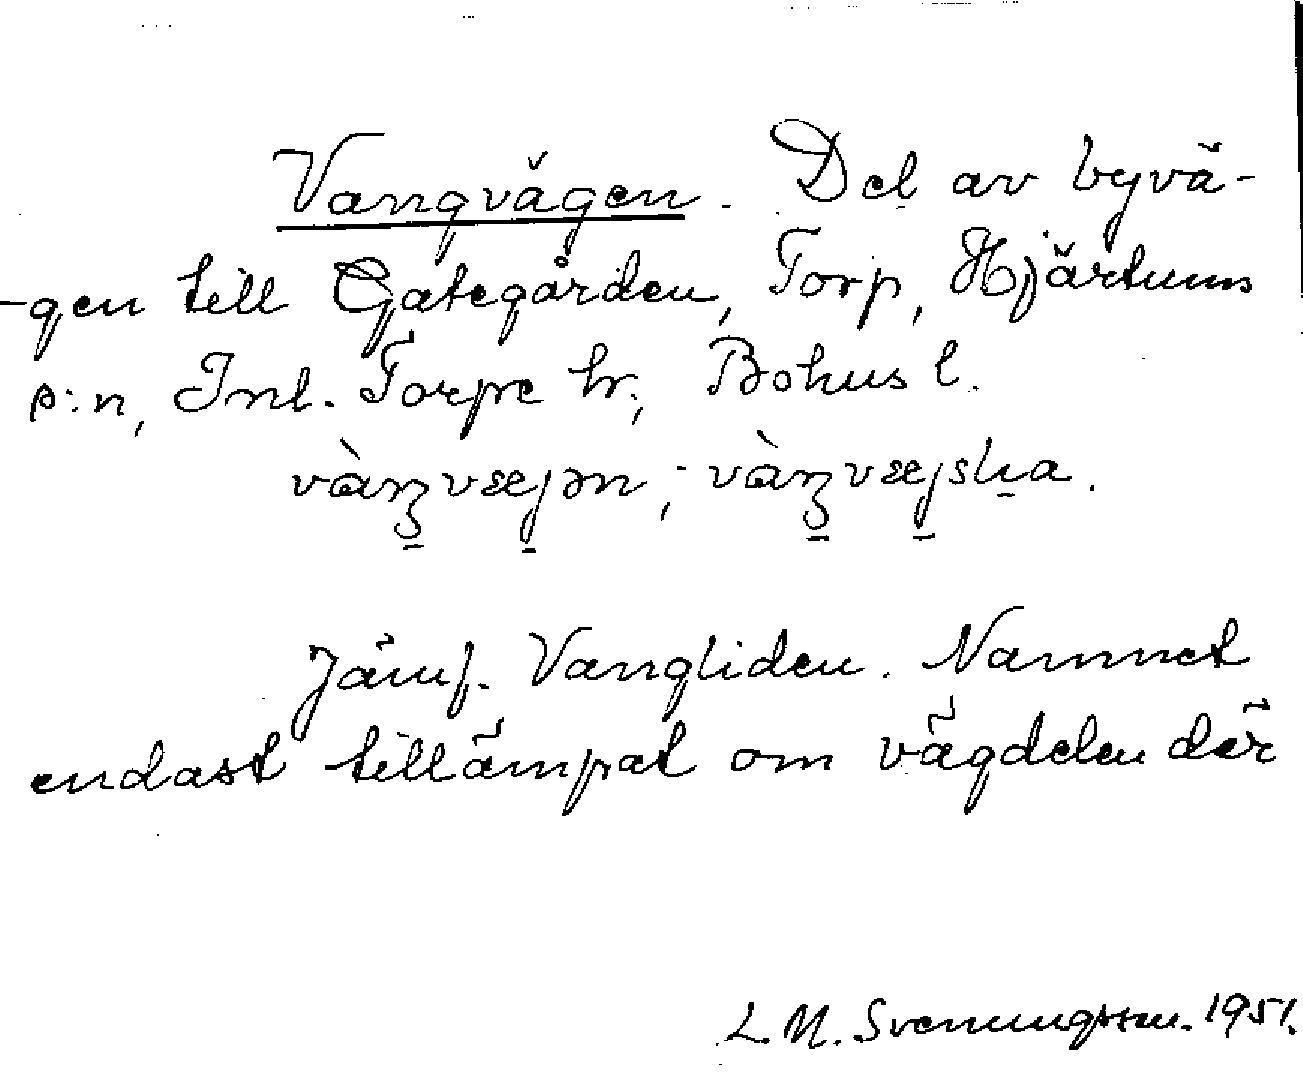 Vangvägen. Del av byvä-
-gen till Gategården, Torp, Hjärtums
s:n, Inl. Torpe hr., Bohus l.
vàŋvæjən; vàŋvæjska.
Jämf. Vangliden. Namnet
endast tillämpat om vägdelen där
L. M. Svenungsson. 1951.